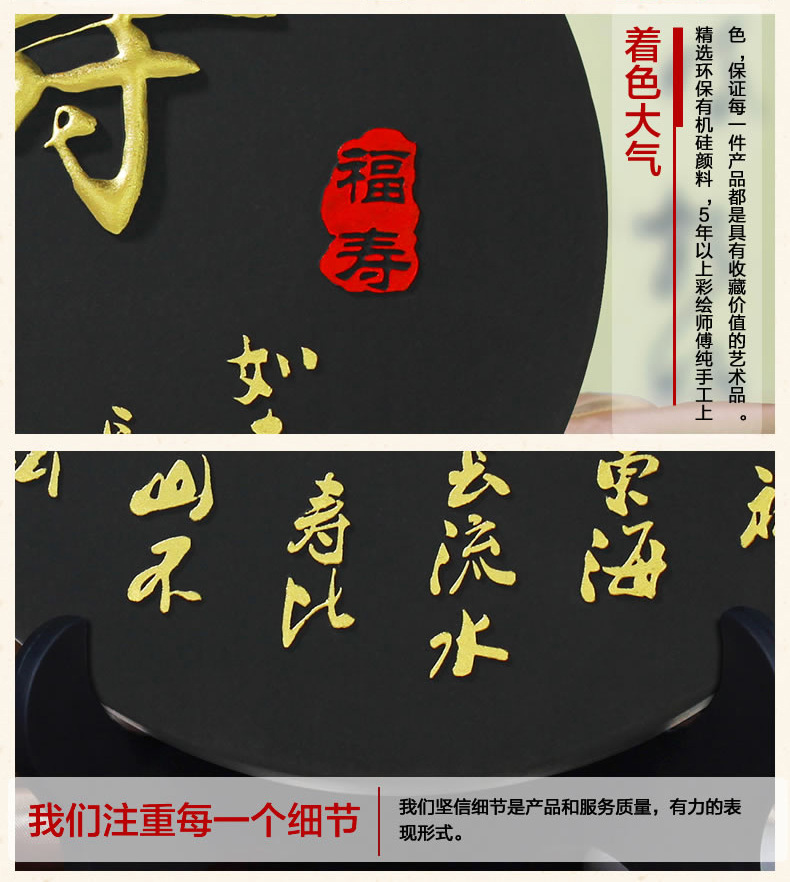 着色大气
精选环保有机硅颜料，5年以上彩绘师傅纯手工上
色，保证每一件产品都是具有收藏价值的艺术品。
寿
福寿
如
东海
长流水
寿比
山不
我们注重每一个细节
我们坚信细节是产品和服务质量，有力的表
现形式。